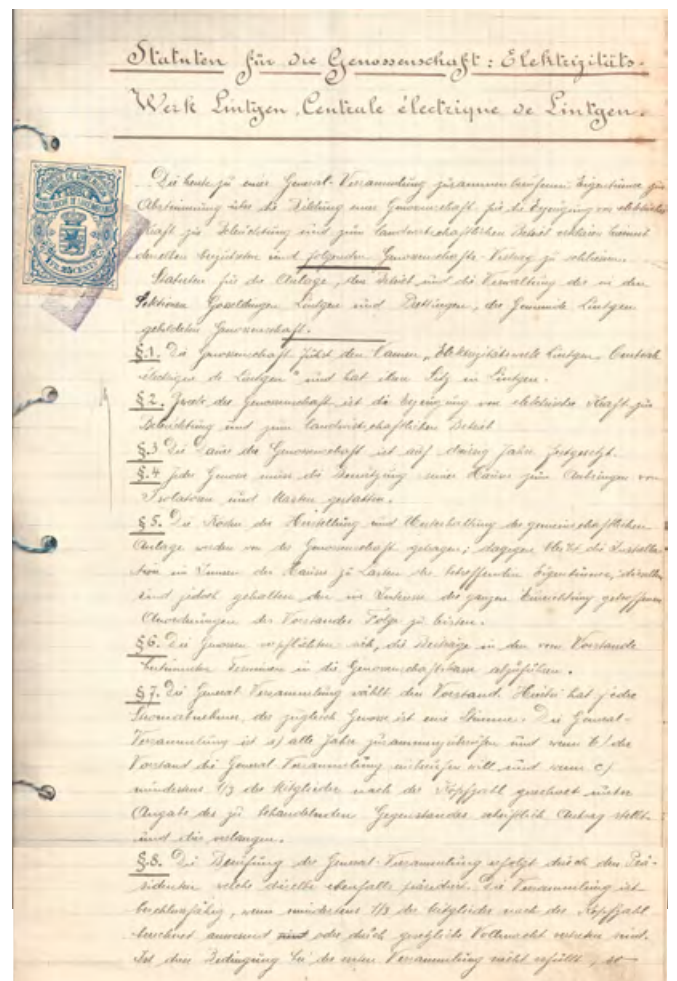 Statuten für die Genossenschaft: Elektrizitäts-
Werk Lintgen, Centrale électrique de Lintgen.
Die heute zu einer General-Versammlung zusammen berufenen Eigentümer zur
Abstimmung über die Bildung einer Genossenschaft für die Erzeugung von elektrischer
Kraft zur Beleuchtung und zum landwirtschaftlichen Betrieb erklären hiermit
denselben beizutreten und folgenden Genossenschafts-Vertrag zu schliessen.
Statuten für die Anlage, den Betrieb und die Verwaltung der in den
Sektionen Gosseldingen Lintgen und Prettingen, der Gemeinde Lintgen
gebildeten Genossenschaft.
§.1. Die Genossenschaft führt den Namen „Elektrizitätswerk Lintgen Centrale
électrique de Lintgen" und hat ihren Sitz in Lintgen.
§2. Zweck der Genossenschaft ist die Erzeugung von elektrischer Kraft zur
Beleuchtung und zum landwirtschaftlichen Betrieb
§.3 Die Dauer der Genossenschaft ist auf dreizig Jahre festgesetzt.
§.4 Jeder Genosse muss die Benützung seines Hauses zum Anbringen von
Isolatoren und Masten gestatten.
§5. Die Kosten der Herstellung und Unterhaltung der gemeinschaftlichen
Anlage werden von der Genossenschaft getragen; dagegen bleibt die Installa-
tion im Innern der Häuser zu Lasten der betreffenden Eigentümer, dieselben
sind jedoch gehalten den im Interesse der ganzen Einrichtung getroffenen
Anordnungen des Vorstandes Folge zu leisten.
§6. Die Genossen verpflichten sich, die Beiträge in den vom Vorstande
bestimmten Terminen in die Genossenschaftskasse abzuführen.
§7. Die General Versammlung wählt den Vorstand. Hierin hat jeder
Stromabnehmer, der zugleich Genosse ist eine Stimme. Die General-
Versammlung ist a) alle Jahre zusammenzuberufen und wenn b) der
Vorstand die General Versammlung einberufen will und wenn c)
mindestens 1/3 der Mitglieder nach der Kopfzahl gerechnet unter
Angabe des zu behandelnden Gegenstandes schriftlich Antrag stellt
und dies verlangen.
§.8. Die Berufung der General-Versammlung erfolgt durch den Prä-
sidenten welche dieselbe ebenfalls präsidiert. Die Versammlung ist
beschlussfähig, wenn mindestens 1/3 der Mitglieder nach der Kopfzahl
berechnet anwesend sind oder durch gesetzliche Vollmacht vertreten sind.
Ist diese Bedingung bei der ersten Versammlung nicht erfüllt, so